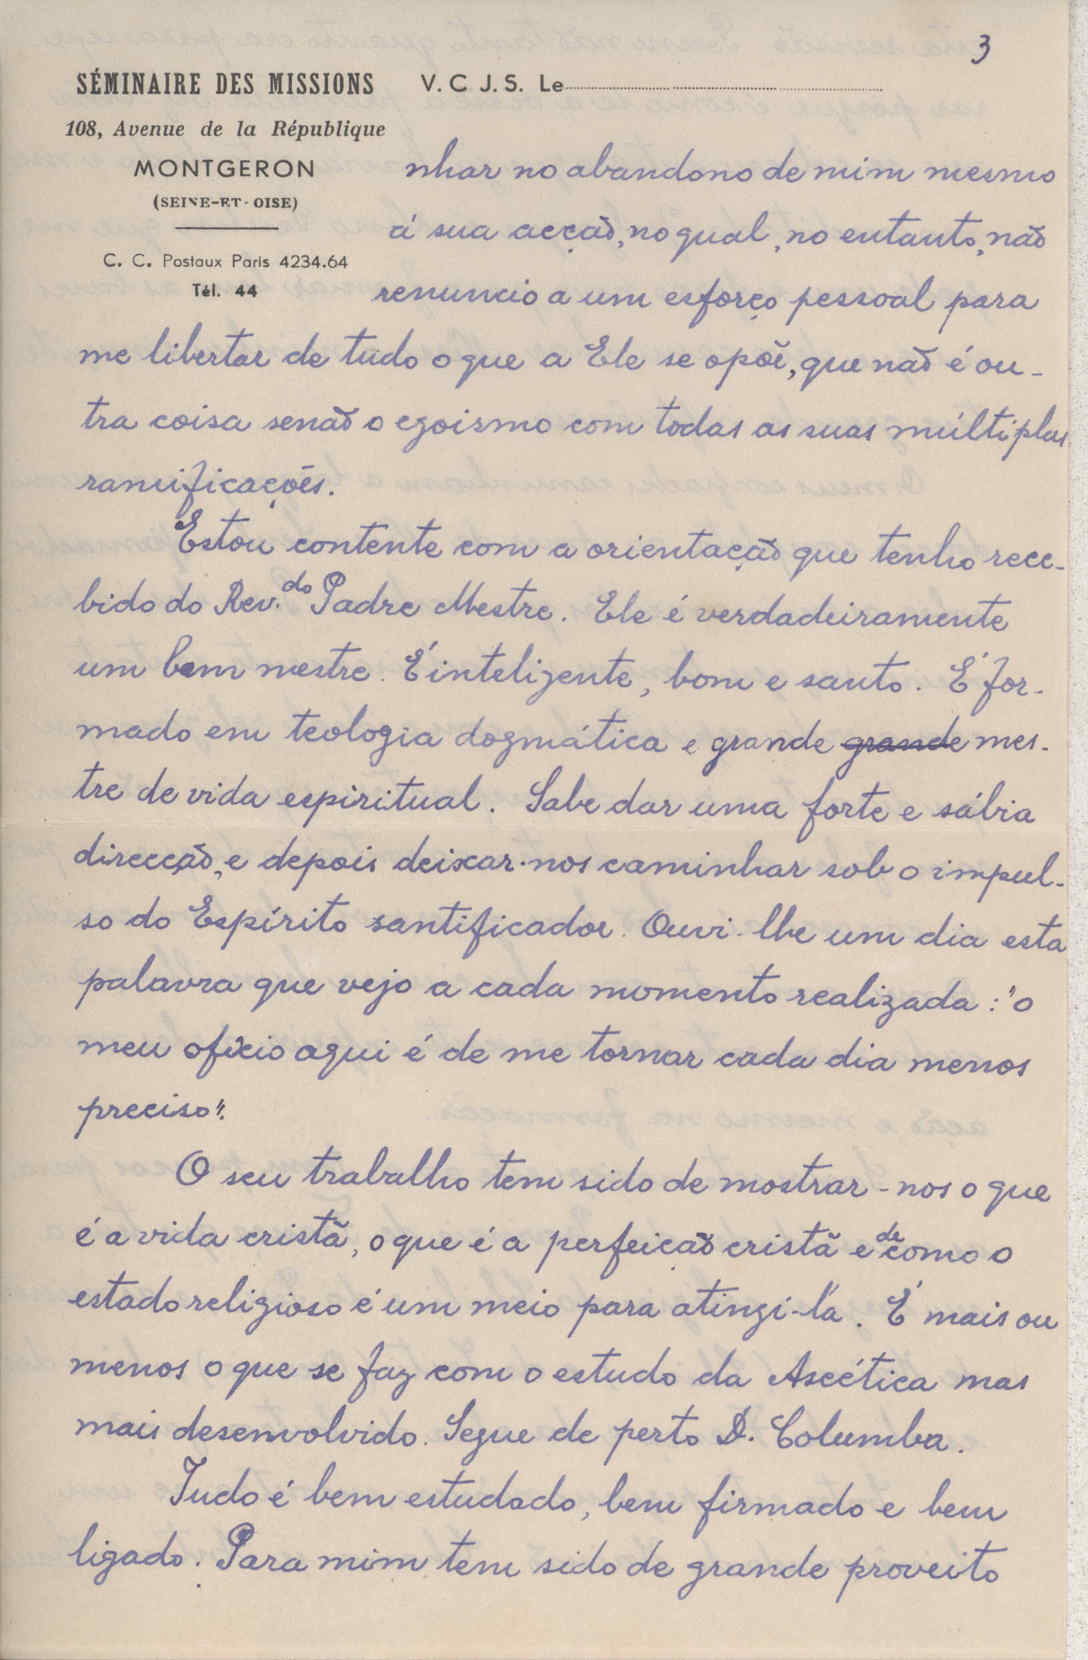 3
SÉMINAIRE DES MISSIONS
108, Avenue de la République
MONTGERON
(SEINE-ET-OISE)
C. C. Postaux Paris 4234.64
Tél. 44
V. C J. S. Le
nhar no abandono de mim mesmo
á sua acção, no qual, no entanto, não
renuncio a um esforço pessoal para
me libertar de tudo o que a Ele se opõe, que não é ou-
tra coisa senão o egoismo com todas as suas múltiplas
ramificações.
Estou contente com a orientação que tenho rece-
bido do Rev.do Padre Mestre. Ele é verdadeiramente
um bom mestre. É inteligente, bom e santo. É for-
mado em teologia dogmática e grande grande mes-
tre de vida espiritual. Sabe dar uma forte e sábia
direcção, e depois deixar-nos caminhar sob o impul-
so do Espírito santificador. Ouvi-lhe um dia esta
palavra que vejo a cada momento realizada: "o
meu ofício aqui é de me tornar cada dia menos
preciso".
O seu trabalho tem sido de mostrar-nos o que
é a vida cristã, o que é a perfeição cristã e de como o
estado religioso é um meio para atingi-la. É mais ou
menos o que se faz com o estudo da Ascética mas
mais desenvolvido. Segue de perto D. Columba.
Tudo é bem estudado, bem firmado e bem
ligado. Para mim tem sido de grande proveito